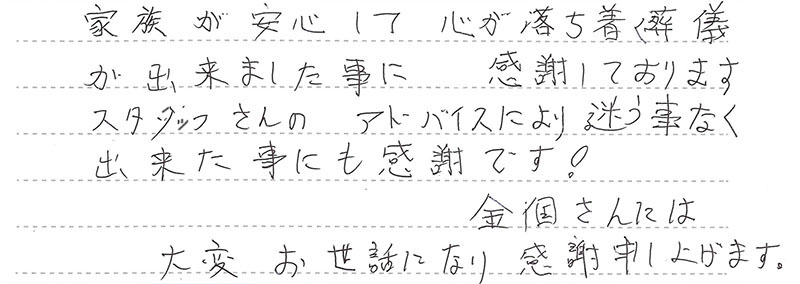 家族が安心して 心が落ち着く葬儀
が出来ました事に 感謝しております
スタッフさんの アドバイスにより迷う事なく
出来た事にも感謝です!
さんには
大変 お世話になり 感謝申し上げます。